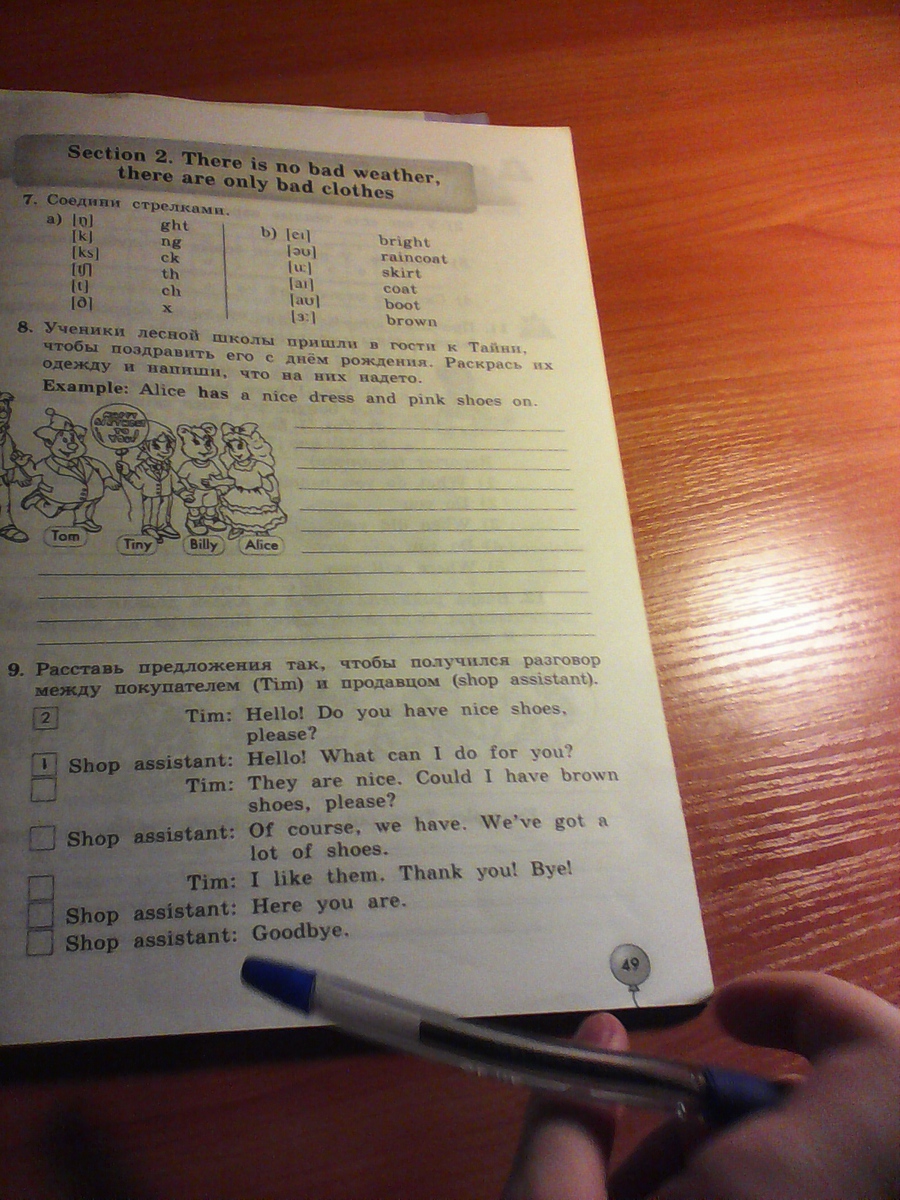 Section 2. There is no bad weather,
there are only bad clothes
7. Соедини стрелками.
a) [ŋ] ght
[k] ng
[ks] ck
[tʃ] th
[t] ch
[ð] x
b) [eɪ] bright
[əʊ] raincoat
[uː] skirt
[aɪ] coat
[aʊ] boot
[ɜː] brown
8. Ученики лесной школы пришли в гости к Тайни,
чтобы поздравить его с днём рождения. Раскрась их
одежду и напиши, что на них надето.
Example: Alice has a nice dress and pink shoes on.
HAPPY
BIRTHDAY
TO
YOU!
Tom Tiny Billy Alice
9. Расставь предложения так, чтобы получился разговор
между покупателем (Tim) и продавцом (shop assistant).
2 Tim: Hello! Do you have nice shoes,
please?
1 Shop assistant: Hello! What can I do for you?
Tim: They are nice. Could I have brown
shoes, please?
Shop assistant: Of course, we have. We've got a
lot of shoes.
Tim: I like them. Thank you! Bye!
Shop assistant: Here you are.
Shop assistant: Goodbye.
49